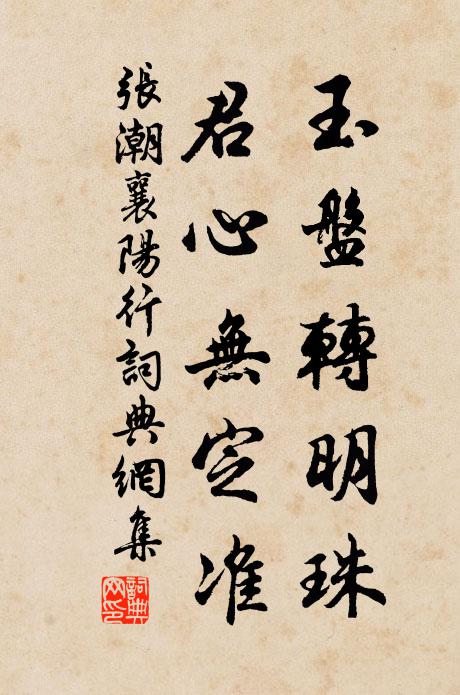 玉盤轉明珠
君心無定准
張潮襄陽行詞典網集
詞典網印